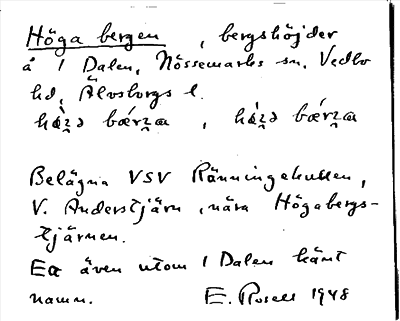 Höga bergen, bergshöjder
å 1 Dalen, Nössemarks sn, Vedbo
hd, Älvsborgs l.
Belägna VSV Ränningekullen,
V. Anderstjärn, nära Högabergs-
tjärnen.
Ea även utom 1 Dalen känt
namn. E. Rosell 1948